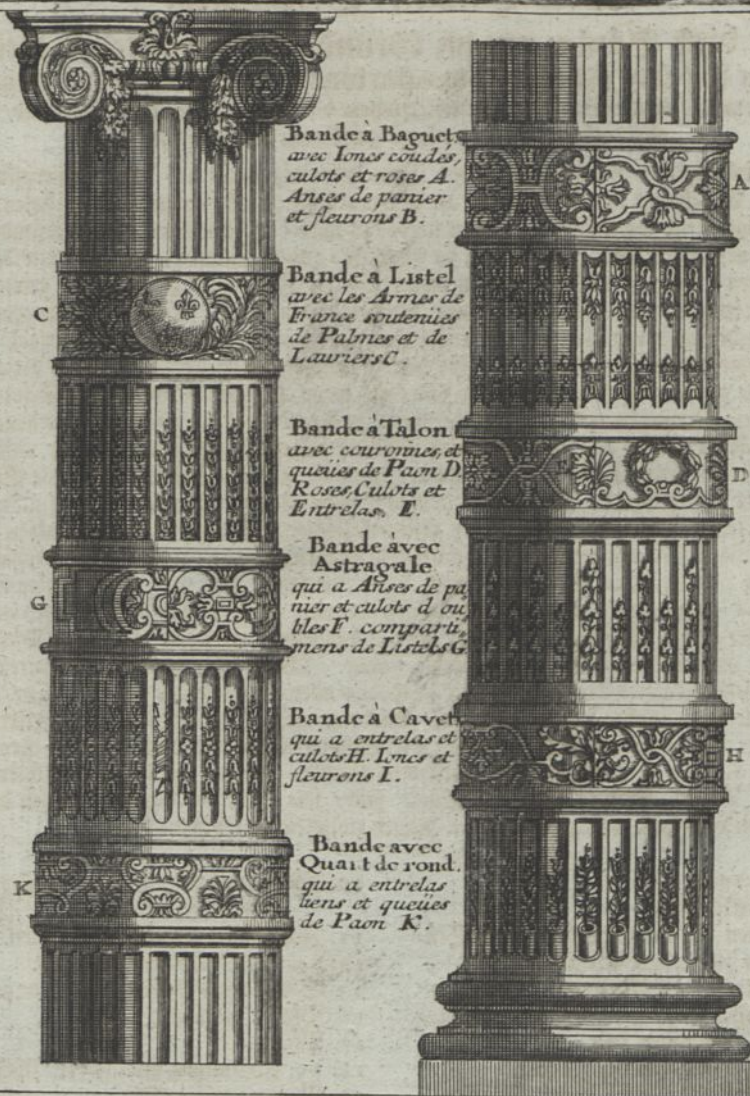 Bande à Baguet
avec Ioncs coudés,
culots et roses A.
Anses de panier
et fleurons B.
A
Bande à Listel
avec les Armes de
France soutenües
de Palmes et de
Lauriers C.
C
Bande à Talon
avec couronnes, et
queües de Paon D.
Roses, Culots et
Entrelas, E.
E
D
Bande avec
Astragale
qui a Anses de pa
nier et culots d ou
bles F. comparti,
mens de Listels G
G
Bande à Cavet
qui a entrelas et
culots H. Ioncs et
fleurons I.
H
Bande avec
Quart de rond.
qui a entrelas
liens et queües
de Paon K.
K